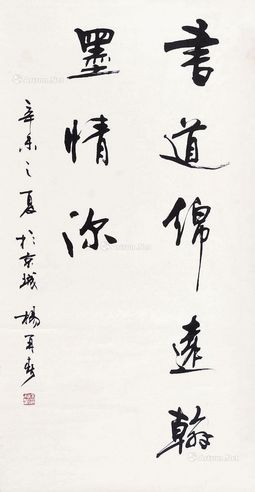 書道綿遠翰
墨情深
辛未之夏於京城 楊再春